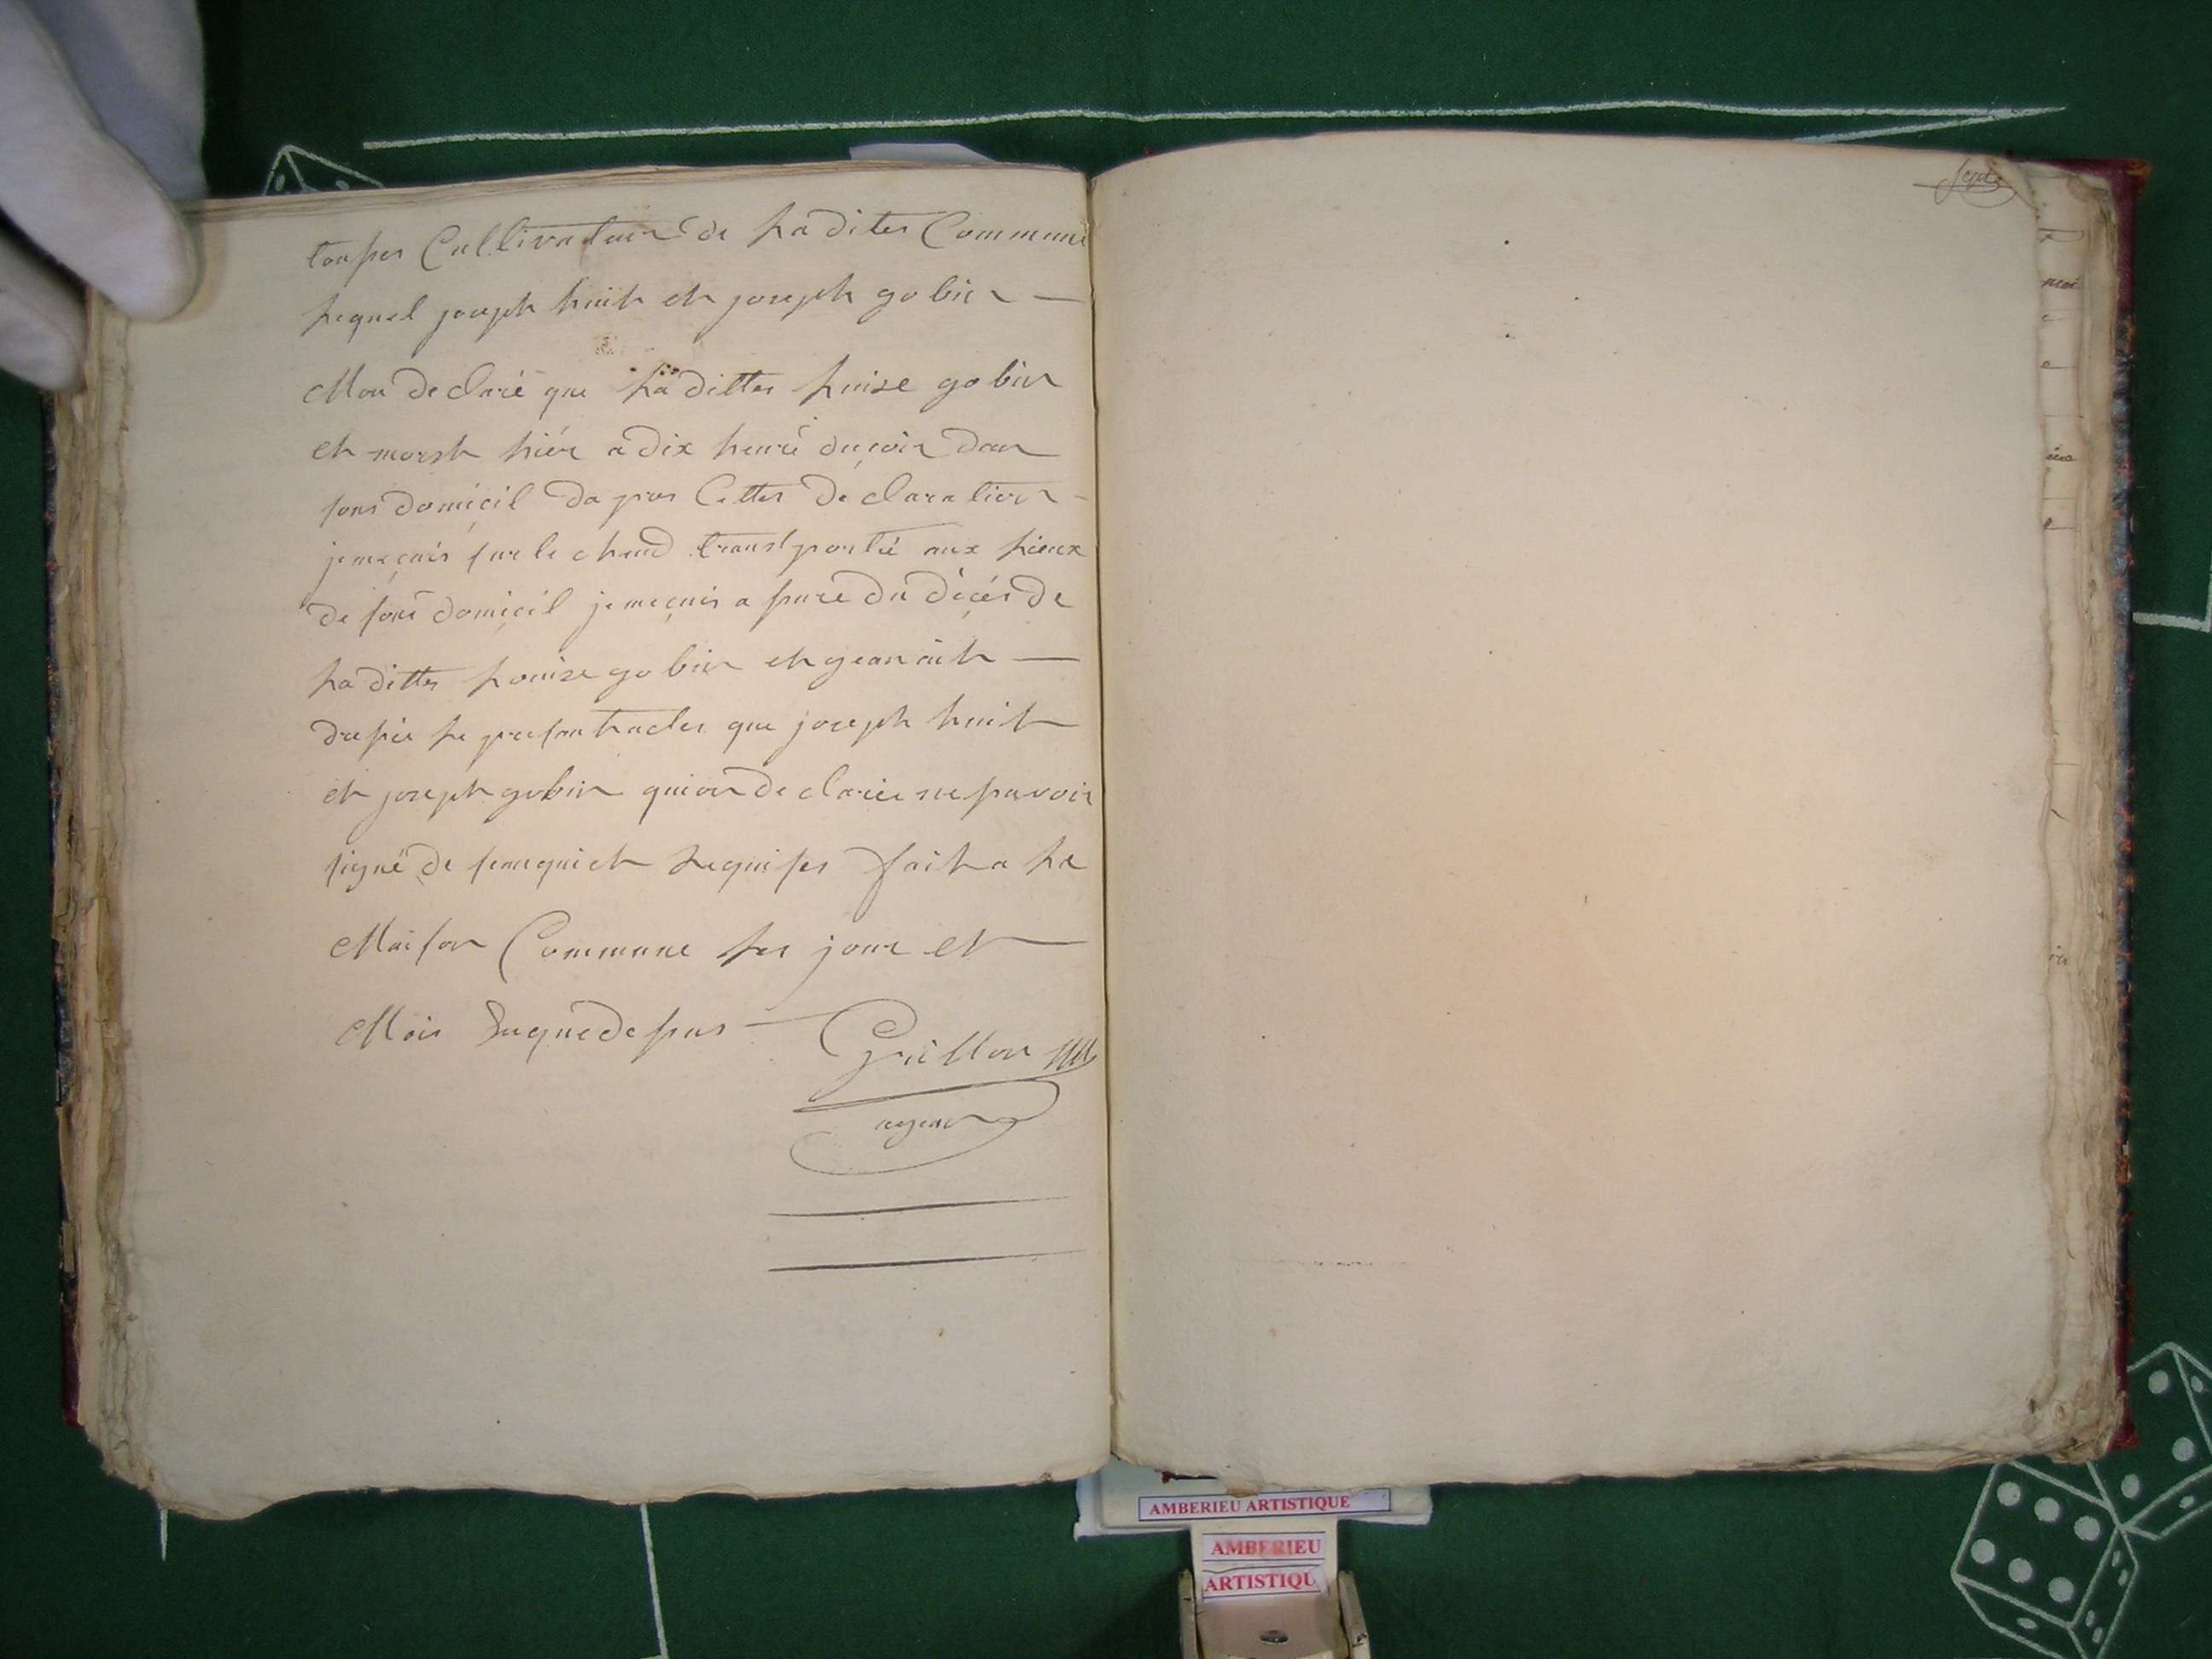 touses Cultivateur de La dites Commune
Lequel joseph huit et joseph gobin
Mon declaré que La dittes Luise gobin
et morst hiér a dix heuré duçoir dan
sons domicil da pras Cettes declaration
jemeçuis sur le chand transtportié aux Lieux
de sons domiçil jemeçuis asuré du déçés de
La dittes Louise gobin et gean ait
drésié Le presan tactes que joseph huit
et joseph gobin quion declariés ne savoir
signé de fenquiet Lequises fait a La
Maison Commune Les jour et
Mois Suquedesus
Guillon
agean
AMBERIEU ARTISTIQUE
AMBERIEU
ARTISTIQU